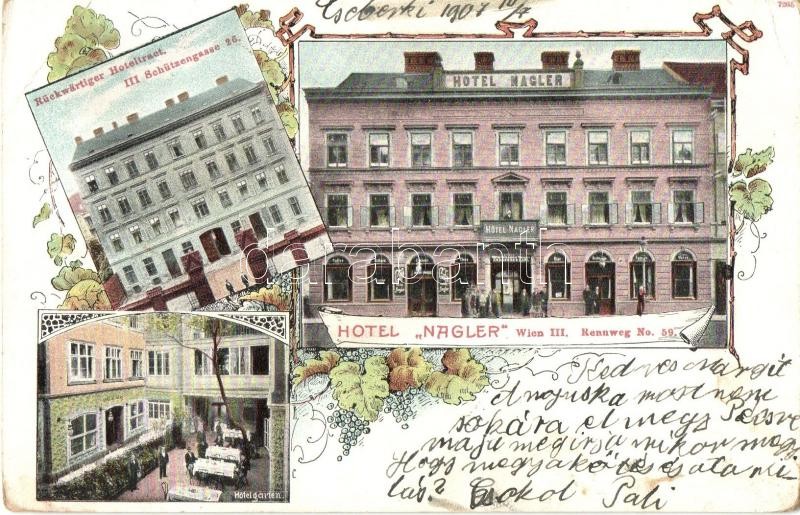 Cseberki 1907 10/7
7035
Rückwärtiger Hoteltract.
III Schützengasse 26.
HOTEL NAGLER
HOTEL NAGLER
darabanth
HOTEL „NAGLER" Wien III. Rennweg No. 59.
Hotelgarten.
Kedves Margit
Anyuska most nem
sokára el megy Pécsre
majd megirja mikor megy
Hogy megy a
? Csokol Pali